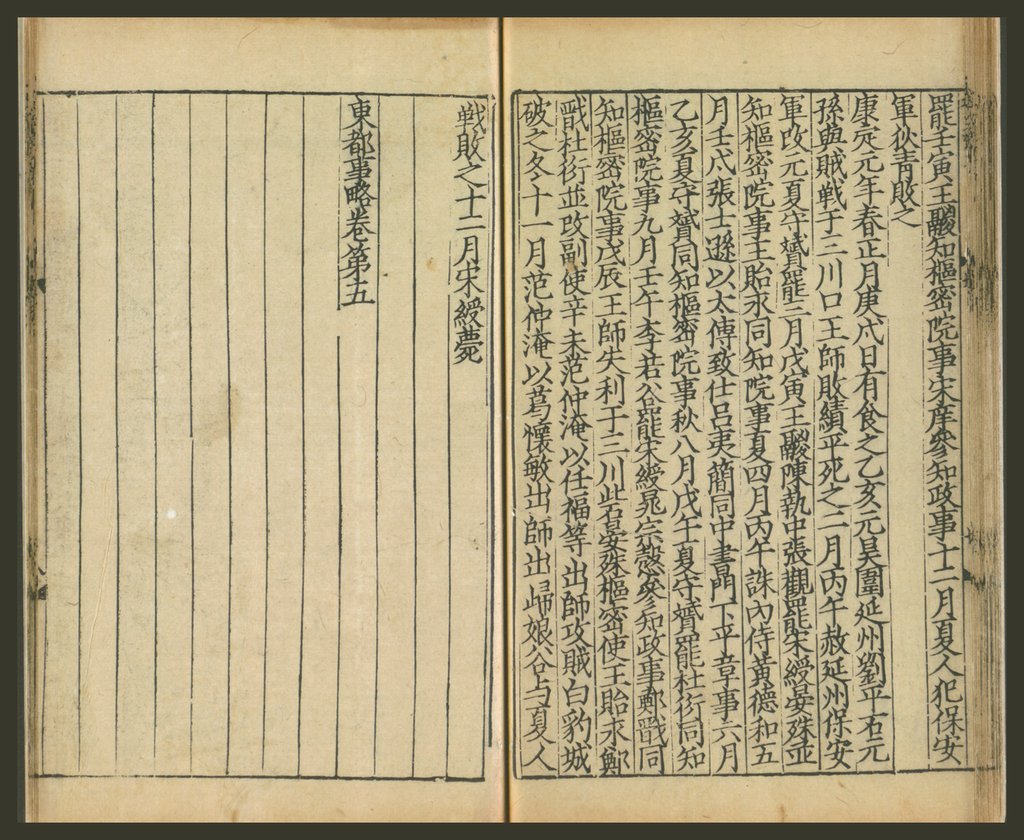 罷壬寅王鬷知樞密院事宋庠參知政事十二月夏人犯保安
軍狄青敗之
康定元年春正月庚戌日有食之乙亥元昊圍延州劉平石元
孫與賊戰于三川口王師敗績平死之二月丙午赦延州保安
軍改元夏守贇罷三月戊寅王鬷陳執中張觀罷宋綬晏殊並
知樞密院事王貽永同知院事夏四月丙午誅內侍黃德和五
月壬戌張士遜以太傅致仕呂夷簡同中書門下平章事六月
乙亥夏守贇同知樞密院事秋八月戊午夏守贇罷杜衍同知
樞密院事九月壬午李若谷罷宋綬晁宗愨參知政事鄭戩同
知樞密院事戊辰王師失利于三川砦晏殊樞密使王貽永鄭
戩杜衍並改副使辛未范仲淹以任福等出師攻賊白豹城
破之冬十一月范仲淹以葛懷敏出師出歸娘谷与夏人
戦敗之十二月宋綬薨
東都事略卷第五